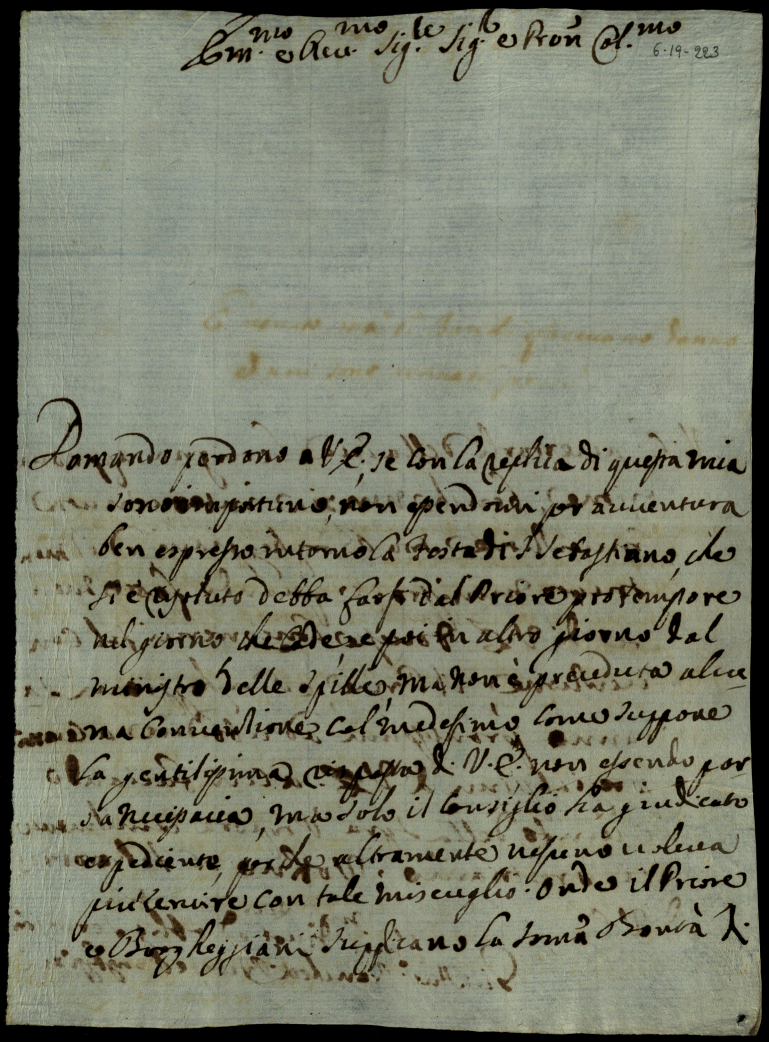 Em.mo e Reu.mo Sig.re Sig.r e Pron Col.mo
6-19-223
Domando perdono a V.E., se con la replica di questa mia
sono importuno, non essendomi per auuentura
ben espresso intorno la festa di S. Sebastiano, che
si è risoluto debba farsi dal Priore pro tempore
nel giorno che cade, e poi in altro giorno dal
ministro delle Spille, ma non è preceduta alcu-
na conuentione col medesimo, come suppone
la gentilissima risposta di V.E. non essendo per
sa necessaria, ma solo il Consiglio ha giudicato
espediente, perche altramente nessuno uoleua
più seruire con tale miscuglio. Onde il Priore
e Borgheggiani supplicano la somã Bontà di